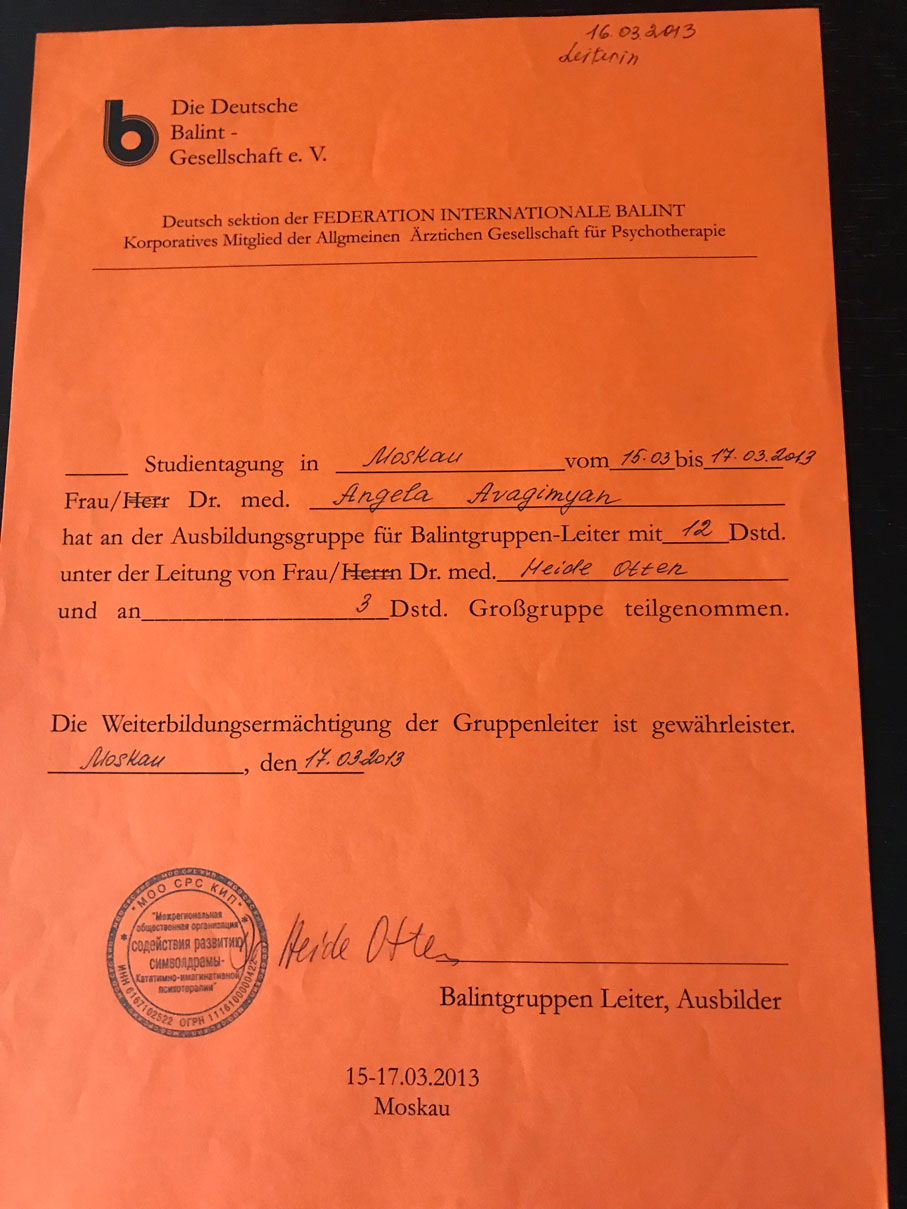 16.03.2013
Leiterin
b
Die Deutsche
Balint -
Gesellschaft e. V.
Deutsch sektion der FEDERATION INTERNATIONALE BALINT
Korporatives Mitglied der Allgmeinen Ärztichen Gesellschaft für Psychotherapie
_____ Studientagung in Moskau vom 15.03 bis 17.03.2013
Frau/Herr Dr. med. Angela Avagimyan
hat an der Ausbildungsgruppe für Balintgruppen-Leiter mit 12 Dstd.
unter der Leitung von Frau/Herrn Dr. med. Heide Otten
und an 3 Dstd. Großgruppe teilgenommen.
Die Weiterbildungsermächtigung der Gruppenleiter ist gewährleister.
Moskau, den 17.03.2013
* МОО СРС КИП *
"Межрегиональная
общественная организация
содействия развитию
символдрамы-
Кататимно-имагинативной
психотерапии"
ИНН 6167102522 ОГРН 1116100000422
Heide Otten
Balintgruppen Leiter, Ausbilder
15-17.03.2013
Moskau